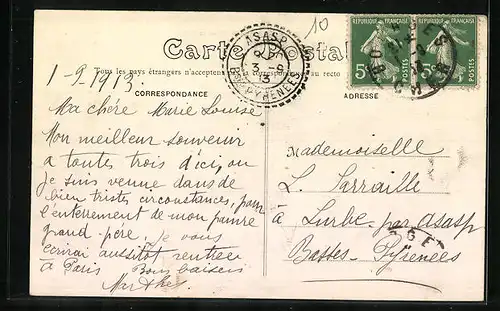 10
RÉPUBLIQUE FRANÇAISE
RÉPUBLIQUE FRANÇAISE
5c POSTES
5c POSTES
Carte Postale
Tous les pays étrangers n'acceptent la correspondance au recto
ASASP
3 -9
13
BSES PYRENEES
CORRESPONDANCE
ADRESSE
1-9-1913
Ma chère Marie Louise
Mon meilleur souvenir
a toutes trois d'ici, ou
je suis venue dans de
bien tristes circonstances, pour
l'enterement de mon pauvre
grand-père, je vous
ecrirai aussitôt rentrée
à Paris Bons baisers
Marthe
Mademoiselle
L. Sarraille
à Lurbe par Asasp
Basses-Pyrenées